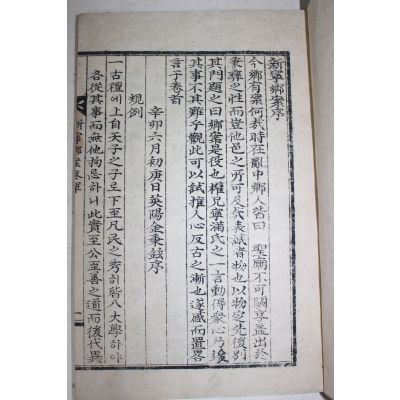 新寧鄕案序
今鄕有案何哉時在亂中鄕人皆曰 聖廟不可闕享益出於
秉彛之性而豈他邑之所可及哉表試者物也以物定先後別
其門題之曰鄕案是役也權兄寧滿氏之一言動得衆心乃竣
其事不其難乎觀此可以試推人心反古之漸也遂感而置畧
言于卷首
辛卯六月初庚日英陽金秉鉉序
規例
一古禮에上自天子之子로下至凡民之秀히皆入大學하야
各從其事而無他拘忌하니此實至公至善之道而後代異
新寧鄕案卷單
一